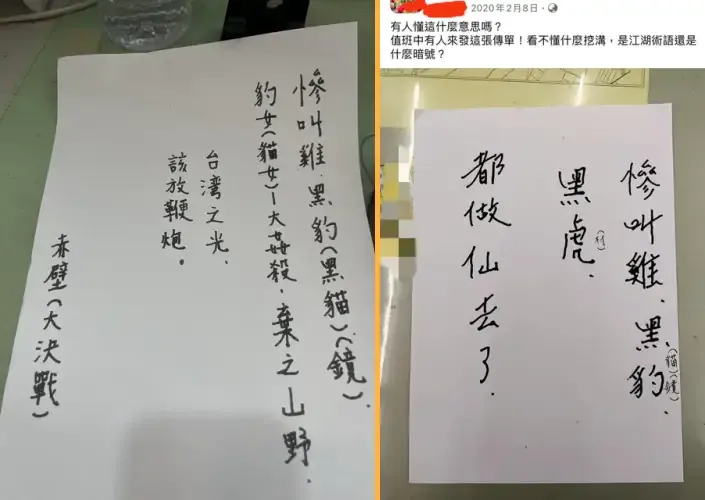 慘叫雞.黑豹(黑貓)(鏡).
豹女(貓女)-大姦殺,棄之山野.
台灣之光.
該放鞭炮。
赤壁(大決戰)
2020年2月8日
有人懂這什麼意思嗎?
值班中有人來發這張傳單!看不懂什麼挖溝,是江湖術語還是
什麼暗號?
慘叫雞.黑豹.(貓)(鏡)
黑虎.
都做仙去了.